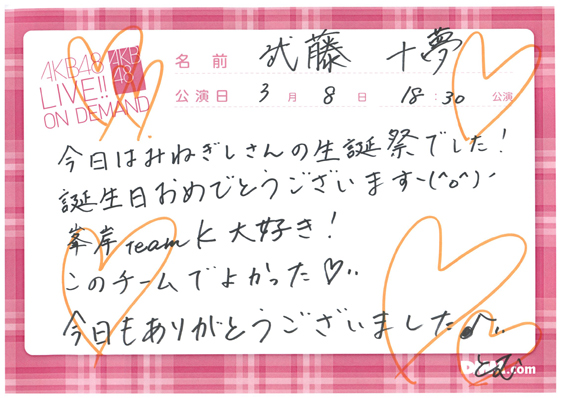 AKB48
LIVE!!
ON DEMAND
AKB
48
名前 武藤 十夢
公演日 3月8日 18:30 公演
今日はみねぎしさんの生誕祭でした!
誕生日おめでとうございますー(^o^)ー
峯岸 Team K 大好き!
このチームでよかった♡..
今日もありがとうございました♪..
とむ
.com